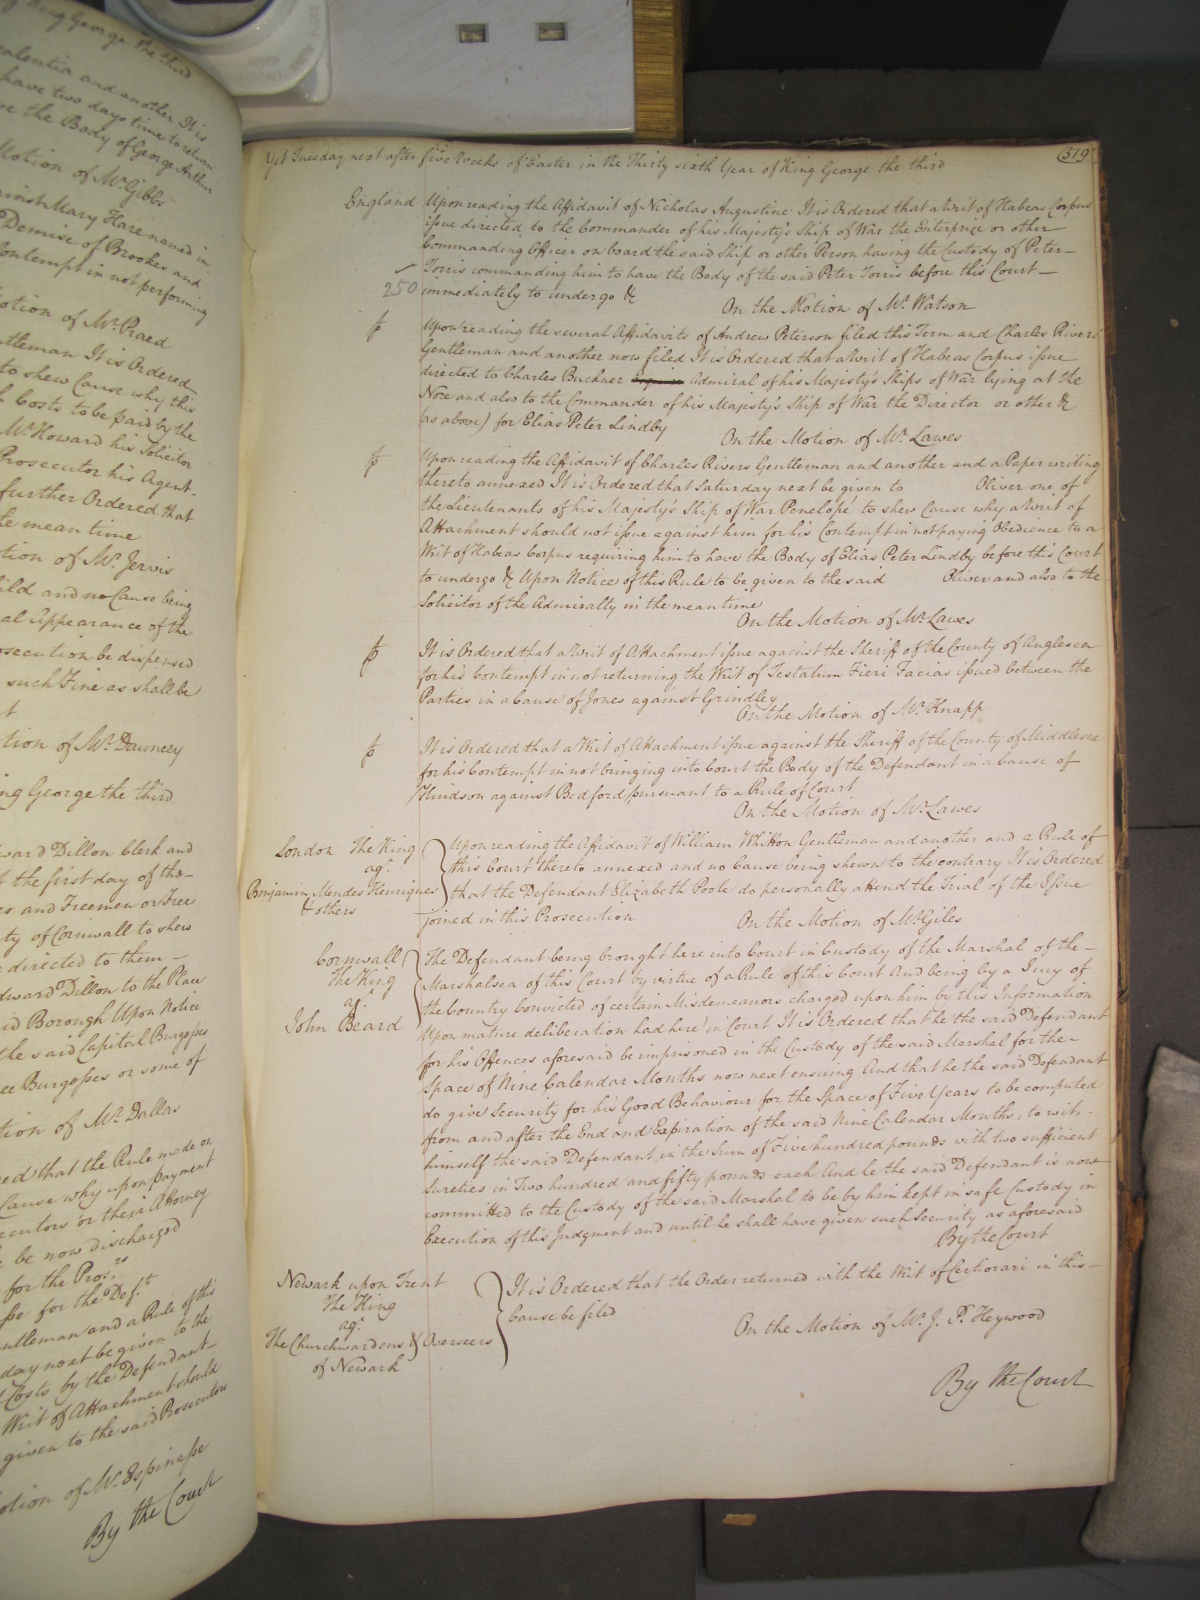 King George the third
alentia and another It is
have two days time to return
the Body of George Arthur
Motion of Mr. Gibbs
against Mary Hare named in
Demise of Brooker and
Contempt in not performing
Motion of Mr. Praed
Gentleman It is Ordered
to shew Cause why this
Costs to be paid by the
Mr. Howard his Solicitor
Prosecutor his Agent
further Ordered that
the mean time
tion of Mr. Jervis
ild and no Cause being
al Appearance of the
osecution be dispensed
such Fine as shall be
tion of Mr. Dauncey
ng George the third
ward Dillon Clerk and
the first day of the
es and Freemen or Free
ty of Cornwall to shew
directed to them
dward Dillon to the Place
id Borough Upon Notice
the said Capital Burgesses
ee Burgesses or some of
tion of Mr. Dallas
ed that the Rule made on
Cause why upon payment
ecutors or their Attorney
be now discharged
for the Pros.rs
for the Def.t
ntleman and a Rule of this
day next be given to the
Costs by the Defendant
Writ of Attachment should
given to the said Prosecutors
otion of Mr. Espinasse
By the Court
519
Yet Tuesday next after five Weeks of Easter in the Thirty sixth Year of King George the third
England Upon reading the Affidavit of Nicholas Augustine It is Ordered that a Writ of Habeas Corpus
issue directed to the Commander of his Majesty's Ship of War the Enterprize or other
Commanding Officer on board the said Ship or other Person having the Custody of Peter
Torris commanding him to have the Body of the said Peter Torris before this Court
250 immediately to undergo &c
On the Motion of Mr. Watson
Upon reading the several Affidavits of Andrew Peterson filed this Term and Charles Rivers
Gentleman and another now filed It is Ordered that a Writ of Habeas Corpus issue
directed to Charles Buckner Admiral of his Majesty's Ships of War lying at the
Nore and also to the Commander of his Majesty's Ship of War the Director or other &c
(as above) for Elias Peter Lindby
On the Motion of Mr. Lawes
Upon reading the Affidavit of Charles Rivers Gentleman and another and a Paper writing
thereto annexed It is Ordered that Saturday next be given to Oliver one of
the Lieutenants of his Majesty's Ship of War Penelope to shew Cause why a Writ of
Attachment should not issue against him for his Contempt in not paying Obedience to a
Writ of Habeas Corpus requiring him to have the Body of Elias Peter Lindby before this Court
to undergo &c Upon Notice of this Rule to be given to the said Oliver and also to the
Solicitor of the Admiralty in the mean time
On the Motion of Mr. Lawes
It is Ordered that a Writ of Attachment issue against the Sheriff of the County of Anglesea
for his Contempt in not returning the Writ of Testatum Fieri Facias issued between the
Parties in a Cause of Jones against Grindley
On the Motion of Mr. Knapp
It is Ordered that a Writ of Attachment issue against the Sheriff of the County of Middlesex
for his Contempt in not bringing into Court the Body of the Defendant in a Cause of
Hindson against Bedford pursuant to a Rule of Court
On the Motion of Mr. Lawes
London The King
agt.
Benjamin Mendes Henriques
& others
Upon reading the Affidavit of William Whitton Gentleman and another and a Rule of
this Court thereto annexed and no Cause being shewn to the contrary It is Ordered
that the Defendant Elizabeth Poole do personally attend the Trial of the Issue
joined in this Prosecution
On the Motion of Mr. Giles
Cornwall
The King
agt.
John Beard
The Defendant being brought here into Court in Custody of the Marshal of the
Marshalsea of this Court by virtue of a Rule of this Court And being by a Jury of
the Country Convicted of certain Misdemeanors charged upon him by this Information
Upon mature deliberation had here in Court It is Ordered that he the said Defendant
for his Offences aforesaid be imprisoned in the Custody of the said Marshal for the
Space of Nine Calendar Months now next ensuing And that he the said Defendant
do give Security for his Good Behaviour for the Space of Five Years to be computed
from and after the End and Expiration of the said Nine Calendar Months, to wit,
himself the said Defendant, in the Sum of Five hundred pounds with two sufficient
Sureties in Two hundred and fifty pounds each And he the said Defendant is now
committed to the Custody of the said Marshal to be by him kept in safe Custody in
Execution of this Judgment and until he shall have given such Security as aforesaid
By the Court
Newark upon Trent
The King
agt.
The Churchwardens & Overseers
of Newark
It is Ordered that the Order returned with the Writ of Certiorari in this
Cause be filed
On the Motion of Mr. J. P. Heywood
By the Court